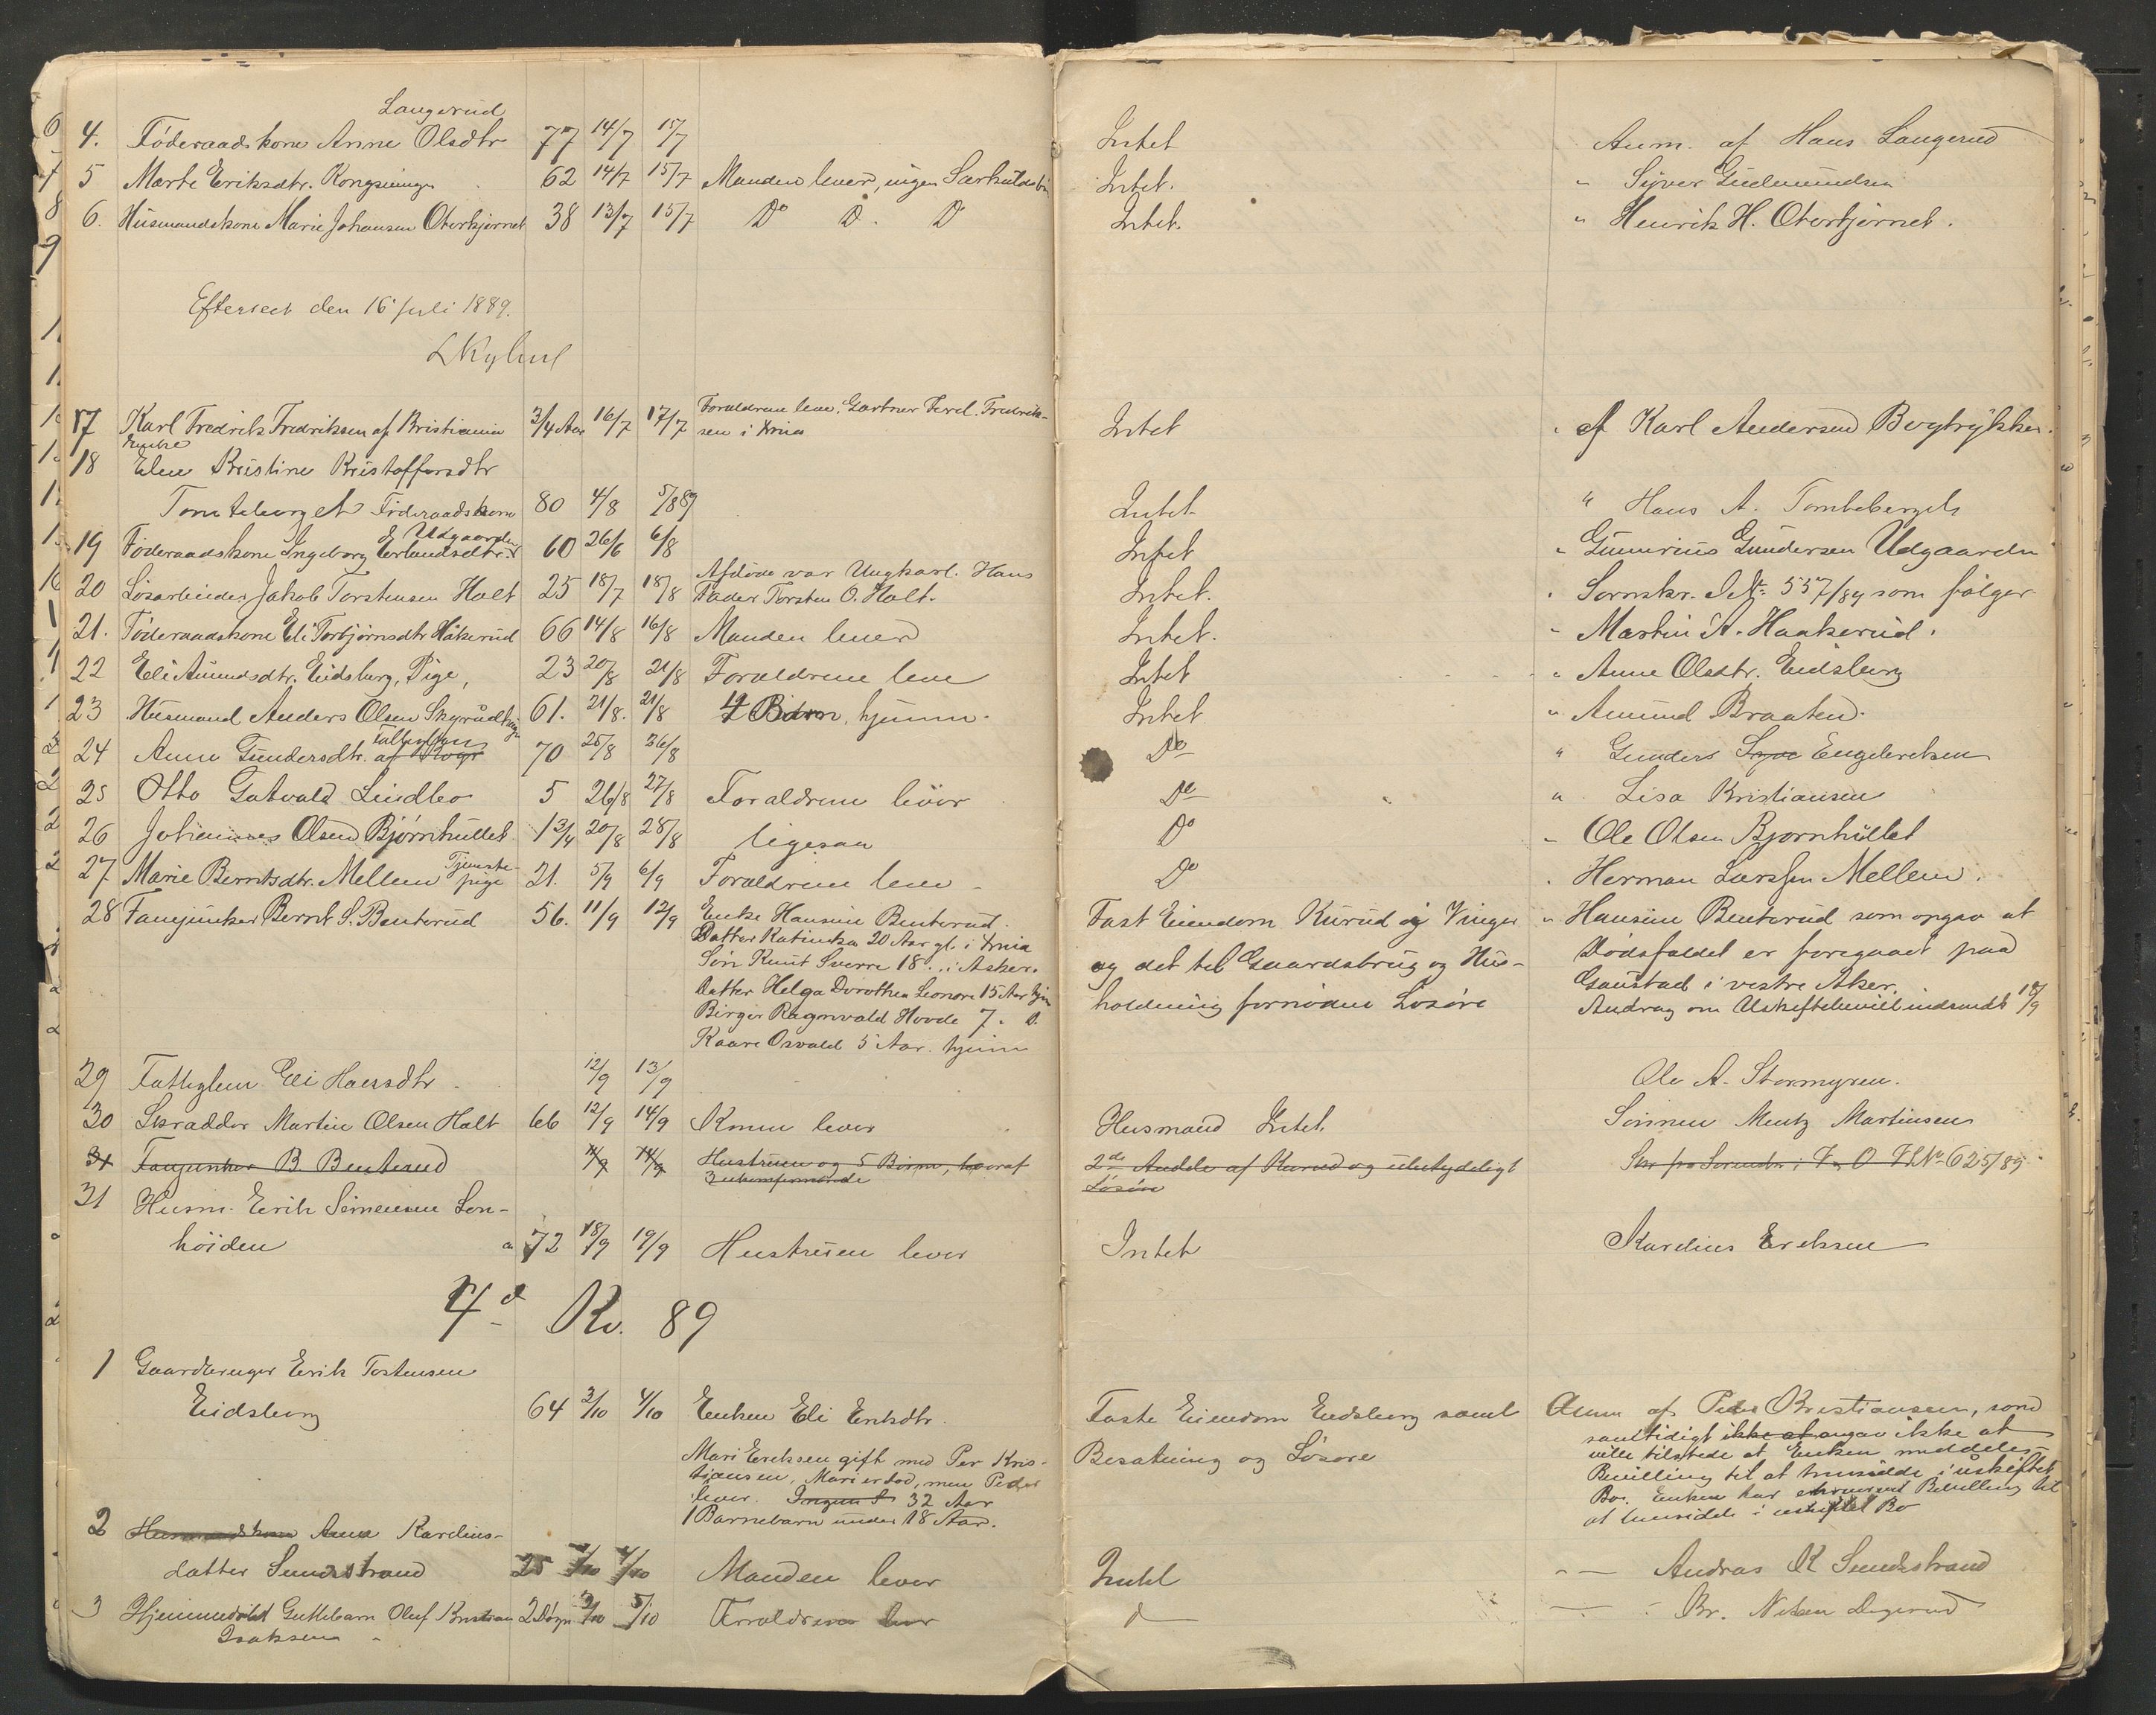 Langerud
4. Föderaadskone Anne Olsdtr 77 14/7 15/7 Intet Anm. af Hans Langerud
5 Marte Eriksdtr. Kongsvinger 62 14/7 15/7 Manden lever, ingen Særkuldsbn Intet. " Syver Gudmundsen
6. Husmandskone Marie Johansen Oterkjernet 38 13/7 15/7 Do D. D Intet. " Henrik H. Oterkjernet.
Efterseet den 16 Juli 1889.
17 Karl Fredrik Fredriksen af Kristiania 3/4 Aar 16/7 17/7 Forældrene leve, Gartner Ferd. Fredrik-
sen i Xnia Intet " af Karl Andersen Bogtrykker.
Enke
18 Elen Kristine Kristoffersdtr
Tomteberget Föderaadskone 80 4/8 5/8 89 Intet " Hans A. Tomteberget
Udgaarden
19 Föderaadskone Ingeborg Erlandsdtr. 60 26/6 6/8 Intet " Gunerius Gundersen Udgaarden
20 Lösarbeider Jakob Torstensen Holt 25 18/7 18/8 Afdöde var Ungkarl. Hans
Fader Torsten O. Holt. Intet. " Sornskr. No 557/89 som fölger
21. Föderaadskone Eli Torbjörnsdtr Håkerud 66 14/8 16/8 Manden lever Intet. " Martin A. Haakerud.
22 Eli Amundsdtr. Eidsberg, Pige, 23 20/8 21/8 Forældrene leve Intet " Anne Olsdtr. Eidsberg
23 Husmand Anders Olsen Skyrudhagen 61. 21/8. 21/8 4 Börn, hjemme. Intet " Amund Braaten.
Fattiglem
24 Anne Gundersdtr. af Rogt 70 25/8 26/8 Do " Gunders Engebretsen
25 Otto Gotvald Lindbo 5 26/8 27/8 Forældrene lever Do " Lisa Kristiansen
26 Johannes Olsen Bjørnhullet 1 3/4 20/8 28/8 ligesaa Do " Ole Olsen Bjørnhullet
27 Marie Berntsdtr. Mellem Tjeneste-
pige 21. 5/9 6/9 Forældrene leve Do " Herman Larssen Mellem.
28 Fanejunker Bernt S. Benterud 56. 11/9 12/9 Enke Hansine Benterud Fast Eiendom Kurud i Vinger " Hansine Benterud som opgav at
Datter Katinka 20 Aar gl. i Xnia
Søn Knut Sverre 18 " i Asker. og det til Gaardsbrug og Hus- Dödsfaldet er foregaaet paa
Datter Helga Dorothea Leonore 15 Aar hjem holdning fornödne Lösöre Gaustad i vestre Aker.
Birger Ragnvald Hovde 7 " D. Andrag om Uskiftebevill indsendt 18/9
Kaare Osvald 5 Aar. hjem
29 Fattiglem Eli Hansdtr 12/9 13/9 Ole A. Stormyren.
30 Skrædder Martin Olsen Holt 66 12/9 14/9 Konen lever Husmand Intet. Sönnen Mentz Martinsen
31 Fanejunker B Benterud 11/9 14/9 Hustruen og 5 Börn, hvoraf 2de Andele af Kurud og ubetydeligt Skr fra Sorenskr. i V. O. No 625/89
3 ukonfirmerede Lösöre
31 Husm. Erik Simensen Len-
höiden a 72 18/9 19/9 Hustruen lever Intet Karelius Eriksen
4d Kv. 89
1 Gaardbruger Erik Tostensen
Eidsberg 64 3/10 4/10 Enken Eli Eriksdtr. Faste Eiendom Eidsberg samt Anm af Peder Kristiansen, som
Mari Eriksen gift med Per Kris- Besætning og Lösöre samtidigt ikke at angav ikke at
tiansen, Mari er död, men Peder ville tilstede at Enken meddeles
lever. 32 Aar Bevilling til at hensidde i uskiftet
1 Barnebarn under 18 Aar. Bo. Enken har Bevilling til
at hensidde i uskiftet Bo
2 Husmandskone Anne Karelius-
datter Sundstrand 25 4/10 Manden lever Intet " Andras K Sundstrand
3 Hjemmedöbt Guttebarn Oluf Kristian 2 Dögn 3/10 5/10 Forældrene lever d " Kr. Nilsen
Isaksen